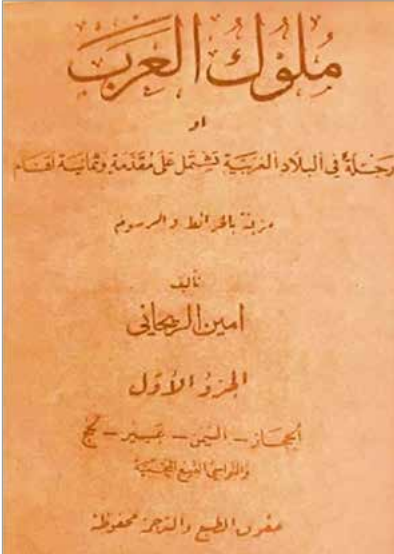 مُلُوكُ العَرَبِ
او
رحلةٌ في البلادِ العربيّة تشتمل على مُقدّمةٍ وثمانية اقسام
مزينة بالخرائط والرسوم
تأليف
امين الريحاني
الجزءُ الأوّل
الحجاز - اليمن - عسير - لحج
والنواحي التسع المحمية
حقوق الطبع والترجمة محفوظة